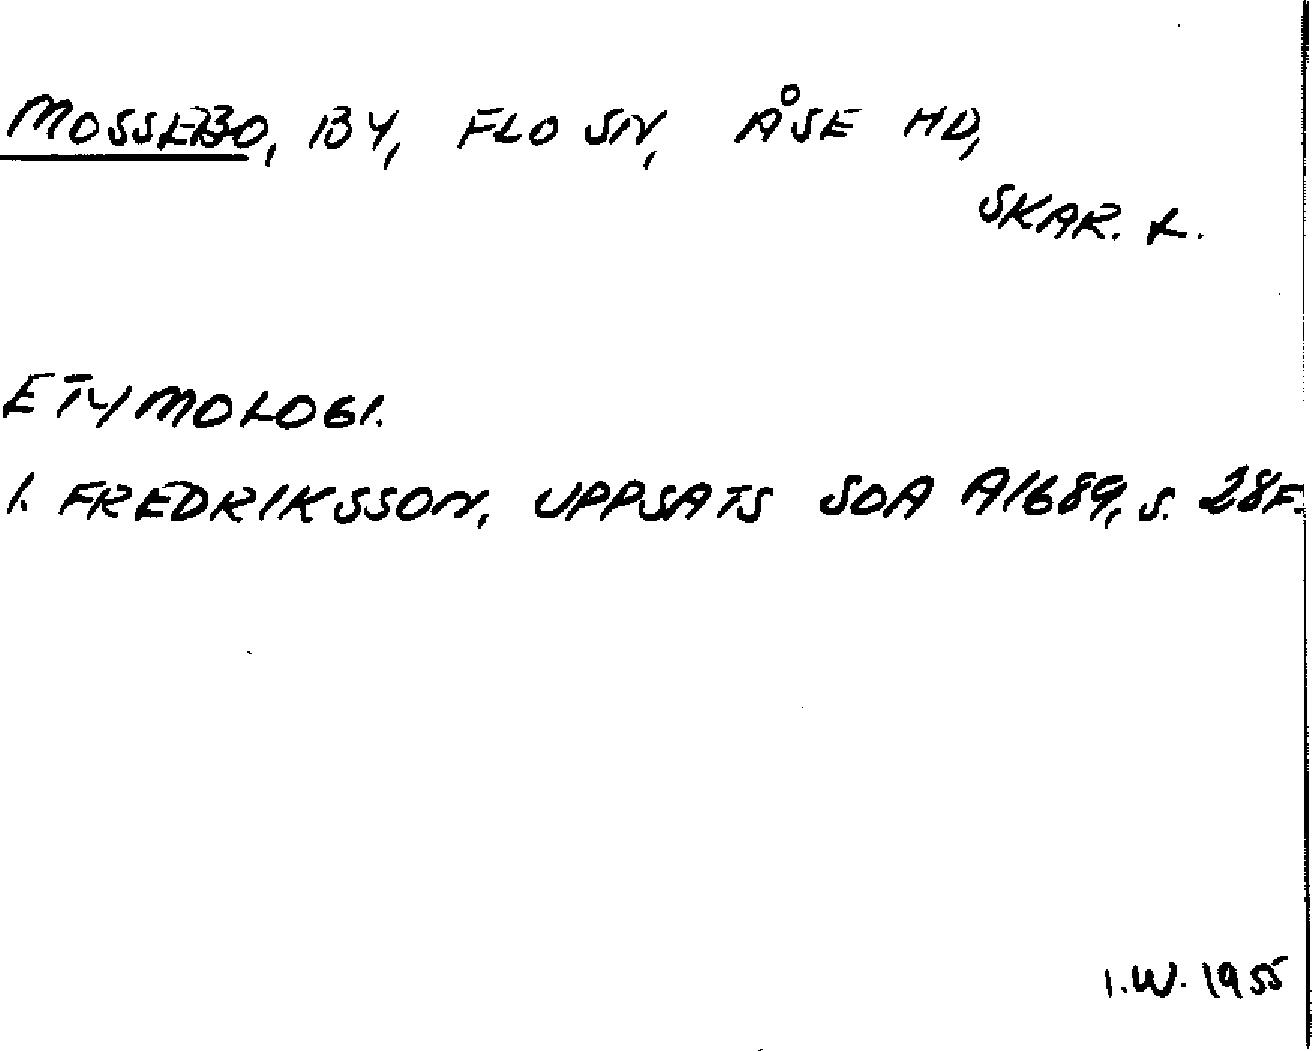 MOSSEBO, BY, FLO SN, ÅSE HD,
SKAR. L.
ETYMOLOGI.
I. FREDRIKSSON, UPPSATS SOA A1689, S. 28F.
I.W. 1955